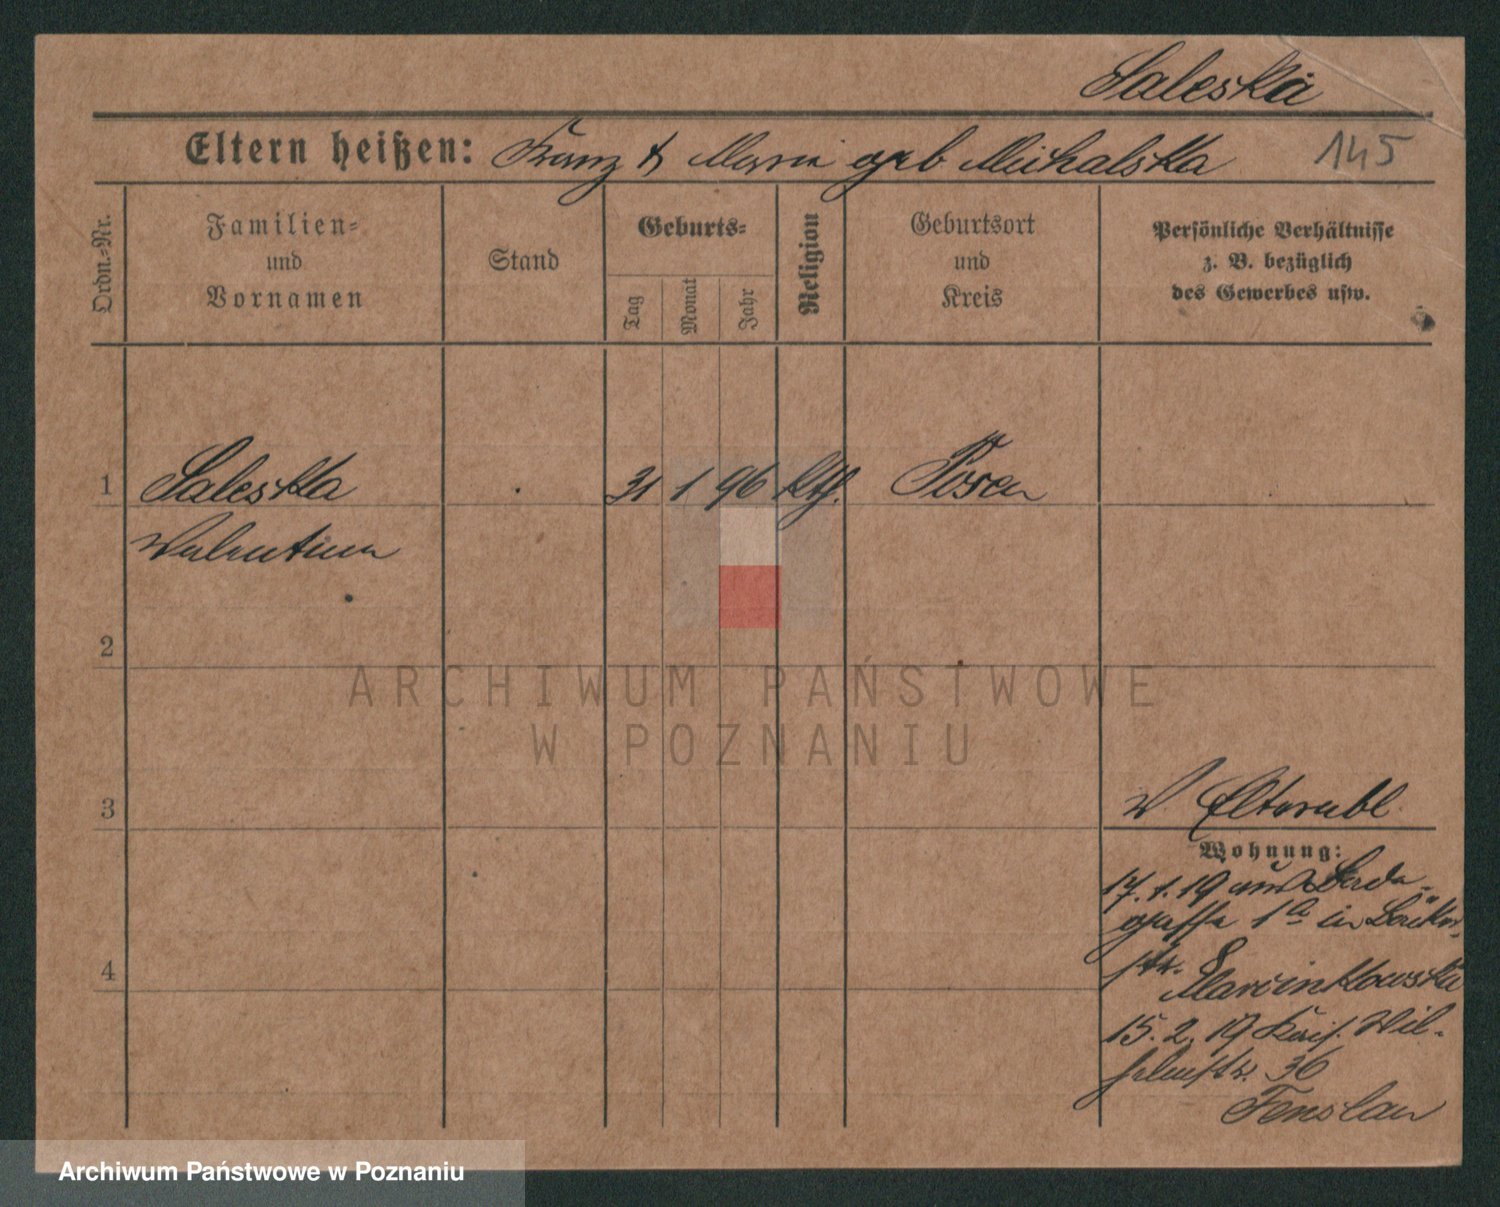 Saleska
Eltern heißen: Franz & Maria geb Michalska 145
Ordn.-Nr.
Familien-
und
Vornamen
Stand
Geburts-
Tag
Monat
Jahr
Religion
Geburtsort
und
Kreis
Persönliche Verhältnisse
z. B. bezüglich
des Gewerbes usw.
1 Saleska 31 1 96 kth. Posen
Valentina
2
ARCHIWUM PAŃSTWOWE
W POZNANIU
3
Wohnung:
17.1.19 aus
gasse 1a in
4
str. 8
Marcinkowska
15.2.19 Kais. Wil-
helmstr. 36
Fenslau
Archiwum Państwowe w Poznaniu